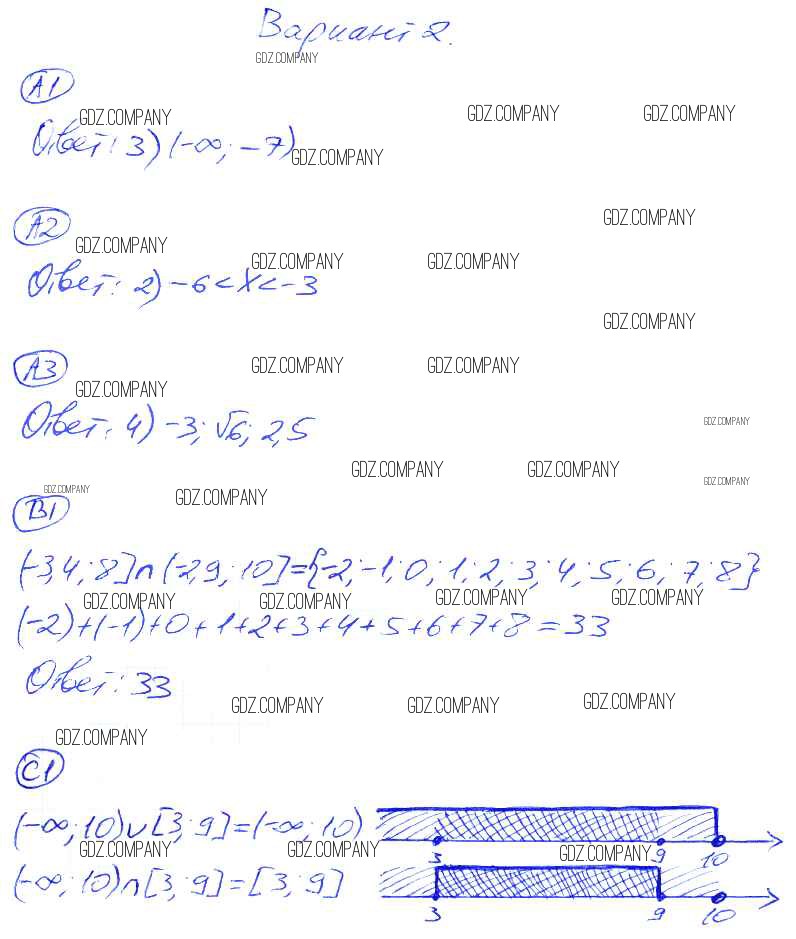 Вариант 2.
GDZ.COMPANY
А1
GDZ.COMPANY GDZ.COMPANY GDZ.COMPANY
Ответ: 3) (-∞; -7)
GDZ.COMPANY
GDZ.COMPANY
А2
GDZ.COMPANY GDZ.COMPANY GDZ.COMPANY
Ответ: 2) -6 < X < -3
GDZ.COMPANY
А3
GDZ.COMPANY GDZ.COMPANY GDZ.COMPANY
Ответ: 4) -3; √6; 2,5
GDZ.COMPANY
GDZ.COMPANY GDZ.COMPANY
GDZ.COMPANY GDZ.COMPANY GDZ.COMPANY
В1
(-3,4; 8] ∩ (-2,9; 10] = {-2; -1; 0; 1; 2; 3; 4; 5; 6; 7; 8}
GDZ.COMPANY GDZ.COMPANY GDZ.COMPANY GDZ.COMPANY
(-2)+(-1)+0+1+2+3+4+5+6+7+8=33
Ответ: 33
GDZ.COMPANY GDZ.COMPANY GDZ.COMPANY
GDZ.COMPANY
С1
(-∞; 10) ∪ [3; 9] = (-∞; 10)
3 9 10
GDZ.COMPANY GDZ.COMPANY GDZ.COMPANY
(-∞; 10) ∩ [3; 9] = [3; 9]
3 9 10